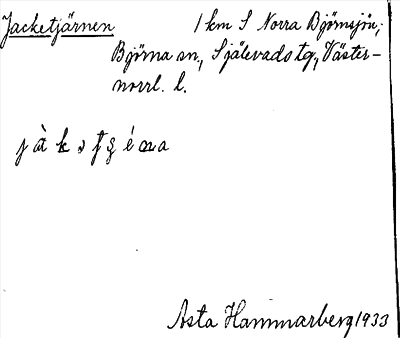 Jacketjärnen 1 km S Norra Björnsjön,
Björna sn, Själevads tg, Väster-
norrl. l.
Asta Hammarberg 1933